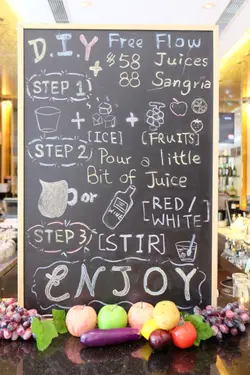 D.I.Y Free Flow
+ $58 Juices
88 Sangria
STEP 1
+ [ICE] + [FRUITS]
STEP 2 Pour a little
Bit of Juice
or [RED/
WHITE]
STEP 3 [STIR]
ENJOY